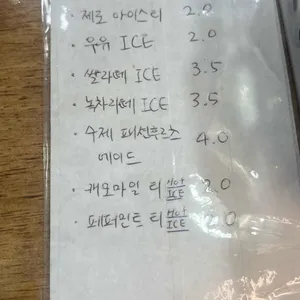 · 제로 아이스티 2.0
· 우유 ICE 2.0
· 쌀라떼 ICE 3.5
· 녹차라떼 ICE 3.5
· 수제 패션후르츠 4.0
에이드
· 캐모마일 티 HOT ICE 2.0
· 페퍼민트 티 HOT ICE 2.0